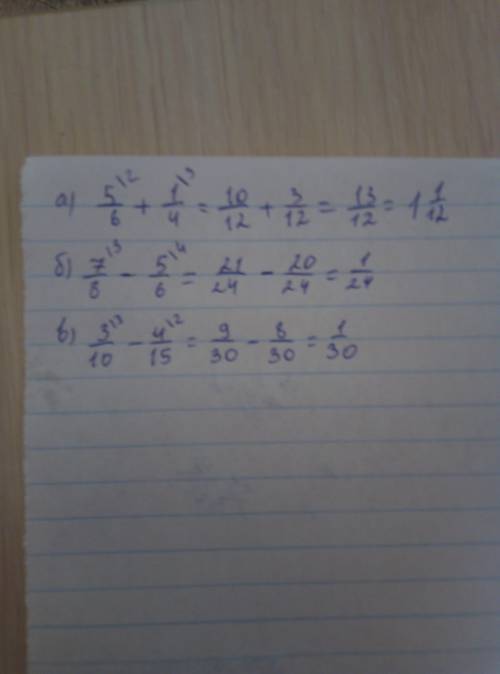 а) 5/6 \2 + 1/4 \3 = 10/12 + 3/12 = 13/12 = 1 1/12
б) 7/8 \3 - 5/6 \4 = 21/24 - 20/24 = 1/24
в) 3/10 \3 - 4/15 \2 = 9/30 - 8/30 = 1/30